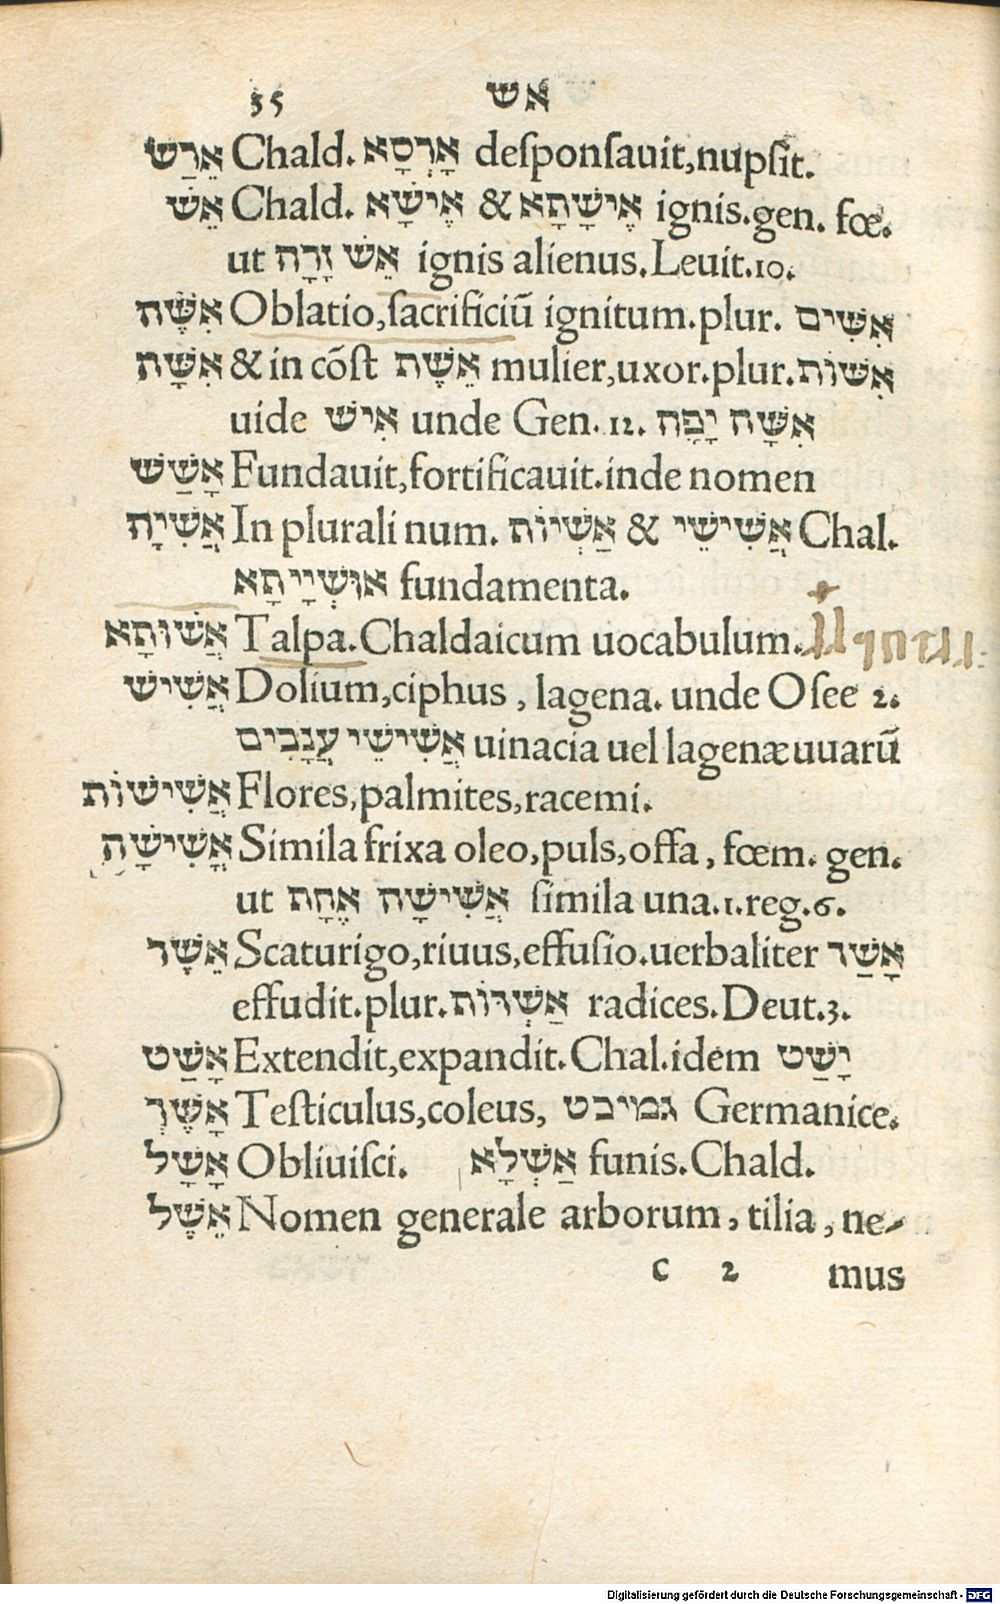 35 אש
אֵרַשׂ Chald. אָרְסָא desponsauit,nupsit.
אֵשׁ Chald. אֶישָׁא & אֶישָׁתָא ignis.gen. fœ.
ut אֵשׁ זָרָה ignis alienus.Leuit.10.
אִשֶּׁה Oblatio,sacrificiũ ignitum.plur. אִשִּׁים
אִשָּׁה & in cõst אֵשֶׁת mulier,uxor.plur. אִשּׁוֹת
uide אִישׁ unde Gen. 12. אִשָּׁה יָפָה
אָשַׁשׁ Fundauit,fortificauit.inde nomen
אֲשִׁיָה In plurali num. אַשְׁיוֹת & אֲשִׁישֵׁי Chal.
אוּשְׁיָיתָא fundamenta.
אֲשׁוּתָא Talpa.Chaldaicum uocabulum.
אֲשִׁישׁ Dolium,ciphus , lagena. unde Osee 2.
אֲשִׁישֵׁי עֲנָבִים uinacia uel lagenæ uuarũ
אֲשִׁישׁוֹת Flores,palmites,racemi.
אֲשִׁישָׁה Simila frixa oleo,puls,offa, fœm. gen.
ut אֲשִׁישָׁה אֶחָת simila una.1.reg.6.
אֵשֶׁד Scaturigo,riuus,effusio.uerbaliter אָשַׁד
effudit.plur. אַשְׁדּוֹת radices.Deut.3.
אָשַׁט Extendit,expandit.Chal.idem יָשַׁט
אָשֶׁךְ Testiculus,coleus, גמויבט Germanice.
אָשָׁל Obliuisci. אַשְׁלָא funis.Chald.
אֵשֶׁל Nomen generale arborum, tilia, ne-
c 2 mus
Digitalisierung gefördert durch die Deutsche Forschungsgemeinschaft - DFG